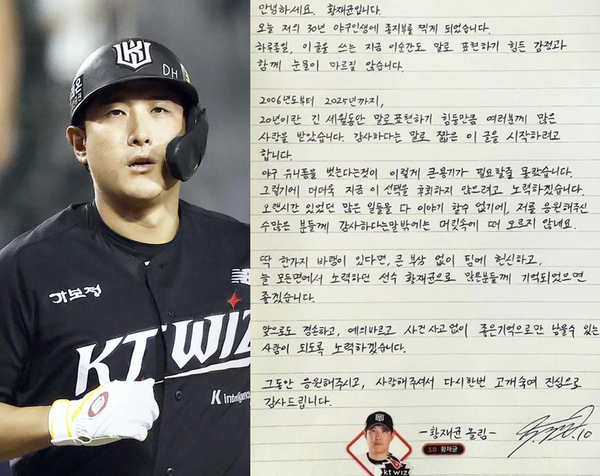 KT
DH
가보정
new balance
KT WIZ
K intelligence
안녕하세요. 황재균입니다.
오늘 저의 30년 야구인생에 종지부를 찍게 되었습니다.
하루종일, 이 글을 쓰는 지금 이순간도 말로 표현하기 힘든 감정과
함께 눈물이 마르질 않습니다.
2006년도부터 2025년까지,
20년이란 긴 세월동안 말로표현하기 힘들만큼 여러분께 많은
사랑을 받았습니다. 감사하다는 말로 짧은 이 글을 시작하려고
합니다.
야구 유니폼을 벗는다는것이 이렇게 큰용기가 필요할줄 몰랐습니다.
그렇기에 더더욱 지금 이 선택을 후회하지 않으려고 노력하겠습니다.
오랜시간 있었던 많은 일들을 다 이야기 할수 없기에, 저를 응원해주신
수많은 분들께 감사하다는말밖에는 머릿속에 떠 오르지 않네요.
딱 한가지 바램이 있다면, 큰 부상 없이 팀에 헌신하고,
늘 모든면에서 노력하던 선수 황재균으로 많은분들께 기억되었으면
좋겠습니다.
앞으로도 겸손하고, 예의바르고 사건 사고 없이 좋은기억으로만 남을수 있는
사람이 되도록 노력하겠습니다.
그동안 응원해주시고, 사랑해주셔서 다시한번 고개숙여 진심으로
감사드립니다.
-황재균 올림-
10
10 황재균
kt wiz